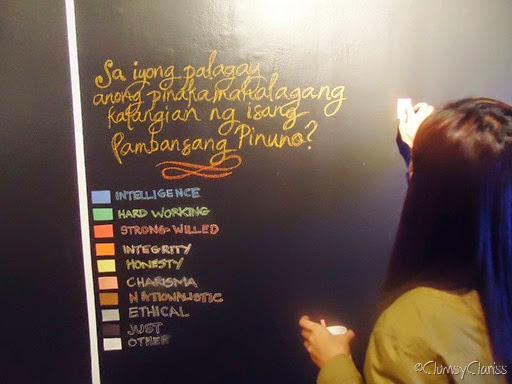 Sa iyong palagay
anong pinakamahalagang
katangian ng isang
Pambansang Pinuno?
INTELLIGENCE
HARD WORKING
STRONG-WILLED
INTEGRITY
HONESTY
CHARISMA
NATIONALISTIC
ETHICAL
JUST
OTHER
©ClumsyClariss